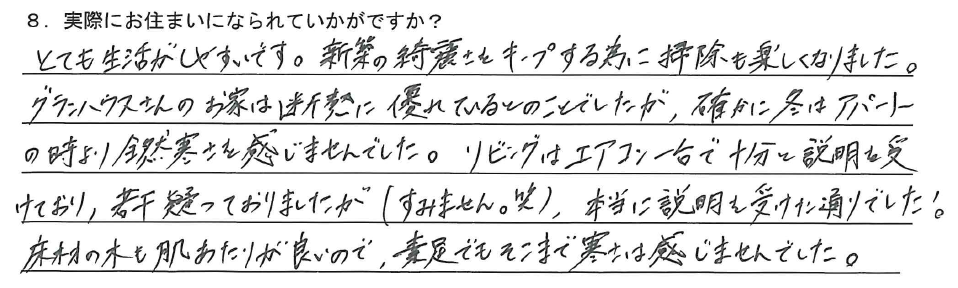 8．実際にお住まいになられていかがですか？
とても生活がしやすいです。新築の綺麗さをキープする為に掃除も楽しくなりました。
グランハウスさんのお家は断熱に優れているとのことでしたが，確かに冬はアパート
の時より全然寒さを感じませんでした。リビングはエアコン一台で十分と説明を受
けており，若干疑っておりましたが（すみません。笑），本当に説明を受けた通りでした！。
床材の木も肌あたりが良いので，素足でもそこまで寒さは感じませんでした。